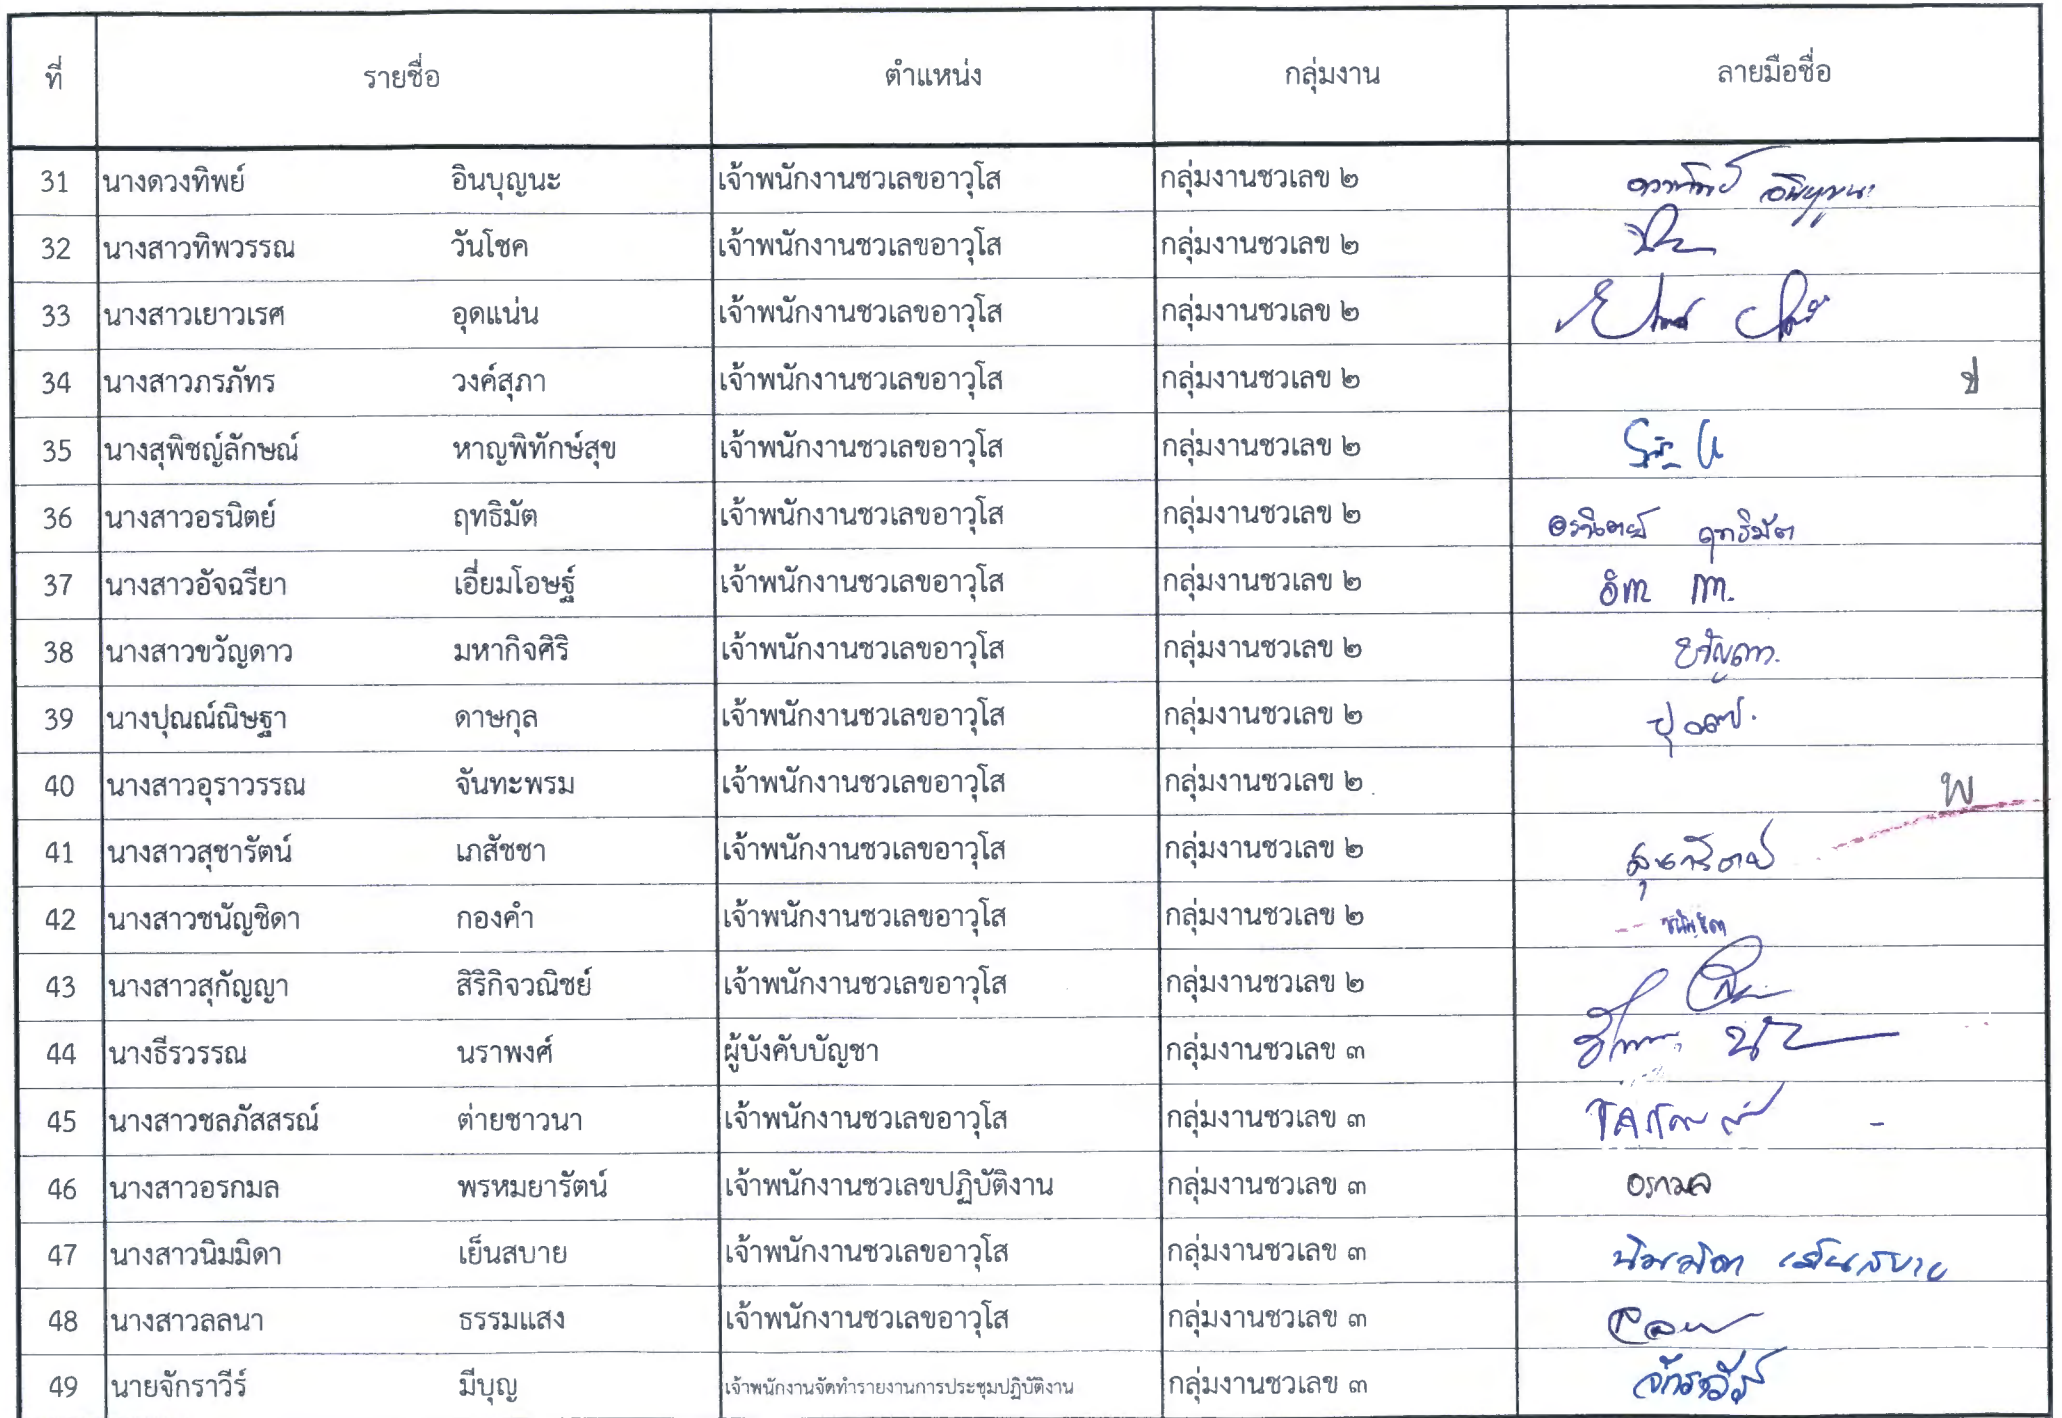 ที่ รายชื่อ ตำแหน่ง กลุ่มงาน ลายมือชื่อ
31 นางดวงทิพย์ อินบุญนะ เจ้าพนักงานชวเลขอาวุโส กลุ่มงานชวเลข ๒ ดวงทิพย์ อินบุญนะ
32 นางสาวทิพวรรณ วันโชค เจ้าพนักงานชวเลขอาวุโส กลุ่มงานชวเลข ๒
33 นางสาวเยาวเรศ อุดแน่น เจ้าพนักงานชวเลขอาวุโส กลุ่มงานชวเลข ๒
34 นางสาวภรภัทร วงค์สุภา เจ้าพนักงานชวเลขอาวุโส กลุ่มงานชวเลข ๒ ป
35 นางสุพิชญ์ลักษณ์ หาญพิทักษ์สุข เจ้าพนักงานชวเลขอาวุโส กลุ่มงานชวเลข ๒
36 นางสาวอรนิตย์ ฤทธิมัต เจ้าพนักงานชวเลขอาวุโส กลุ่มงานชวเลข ๒ อรนิตย์ ฤทธิมัต
37 นางสาวอัจฉรียา เอี่ยมโอษฐ์ เจ้าพนักงานชวเลขอาวุโส กลุ่มงานชวเลข ๒
38 นางสาวขวัญดาว มหากิจศิริ เจ้าพนักงานชวเลขอาวุโส กลุ่มงานชวเลข ๒ ขวัญดาว
39 นางปุณณ์ณิษฐา ดาษกุล เจ้าพนักงานชวเลขอาวุโส กลุ่มงานชวเลข ๒
40 นางสาวอุราวรรณ จันทะพรม เจ้าพนักงานชวเลขอาวุโส กลุ่มงานชวเลข ๒ พ
41 นางสาวสุชารัตน์ เภสัชชา เจ้าพนักงานชวเลขอาวุโส กลุ่มงานชวเลข ๒ สุชารัตน์
42 นางสาวชนัญชิดา กองคำ เจ้าพนักงานชวเลขอาวุโส กลุ่มงานชวเลข ๒ ชนัญชิดา
43 นางสาวสุกัญญา สิริกิจวณิชย์ เจ้าพนักงานชวเลขอาวุโส กลุ่มงานชวเลข ๒
44 นางธีรวรรณ นราพงศ์ ผู้บังคับบัญชา กลุ่มงานชวเลข ๓
45 นางสาวชลภัสสรณ์ ต่ายชาวนา เจ้าพนักงานชวเลขอาวุโส กลุ่มงานชวเลข ๓
46 นางสาวอรกมล พรหมยารัตน์ เจ้าพนักงานชวเลขปฏิบัติงาน กลุ่มงานชวเลข ๓ อรกมล
47 นางสาวนิมมิดา เย็นสบาย เจ้าพนักงานชวเลขอาวุโส กลุ่มงานชวเลข ๓ นิมมิดา เย็นสบาย
48 นางสาวลลนา ธรรมแสง เจ้าพนักงานชวเลขอาวุโส กลุ่มงานชวเลข ๓
49 นายจักราวีร์ มีบุญ เจ้าพนักงานจัดทำรายงานการประชุมปฏิบัติงาน กลุ่มงานชวเลข ๓ จักราวีร์